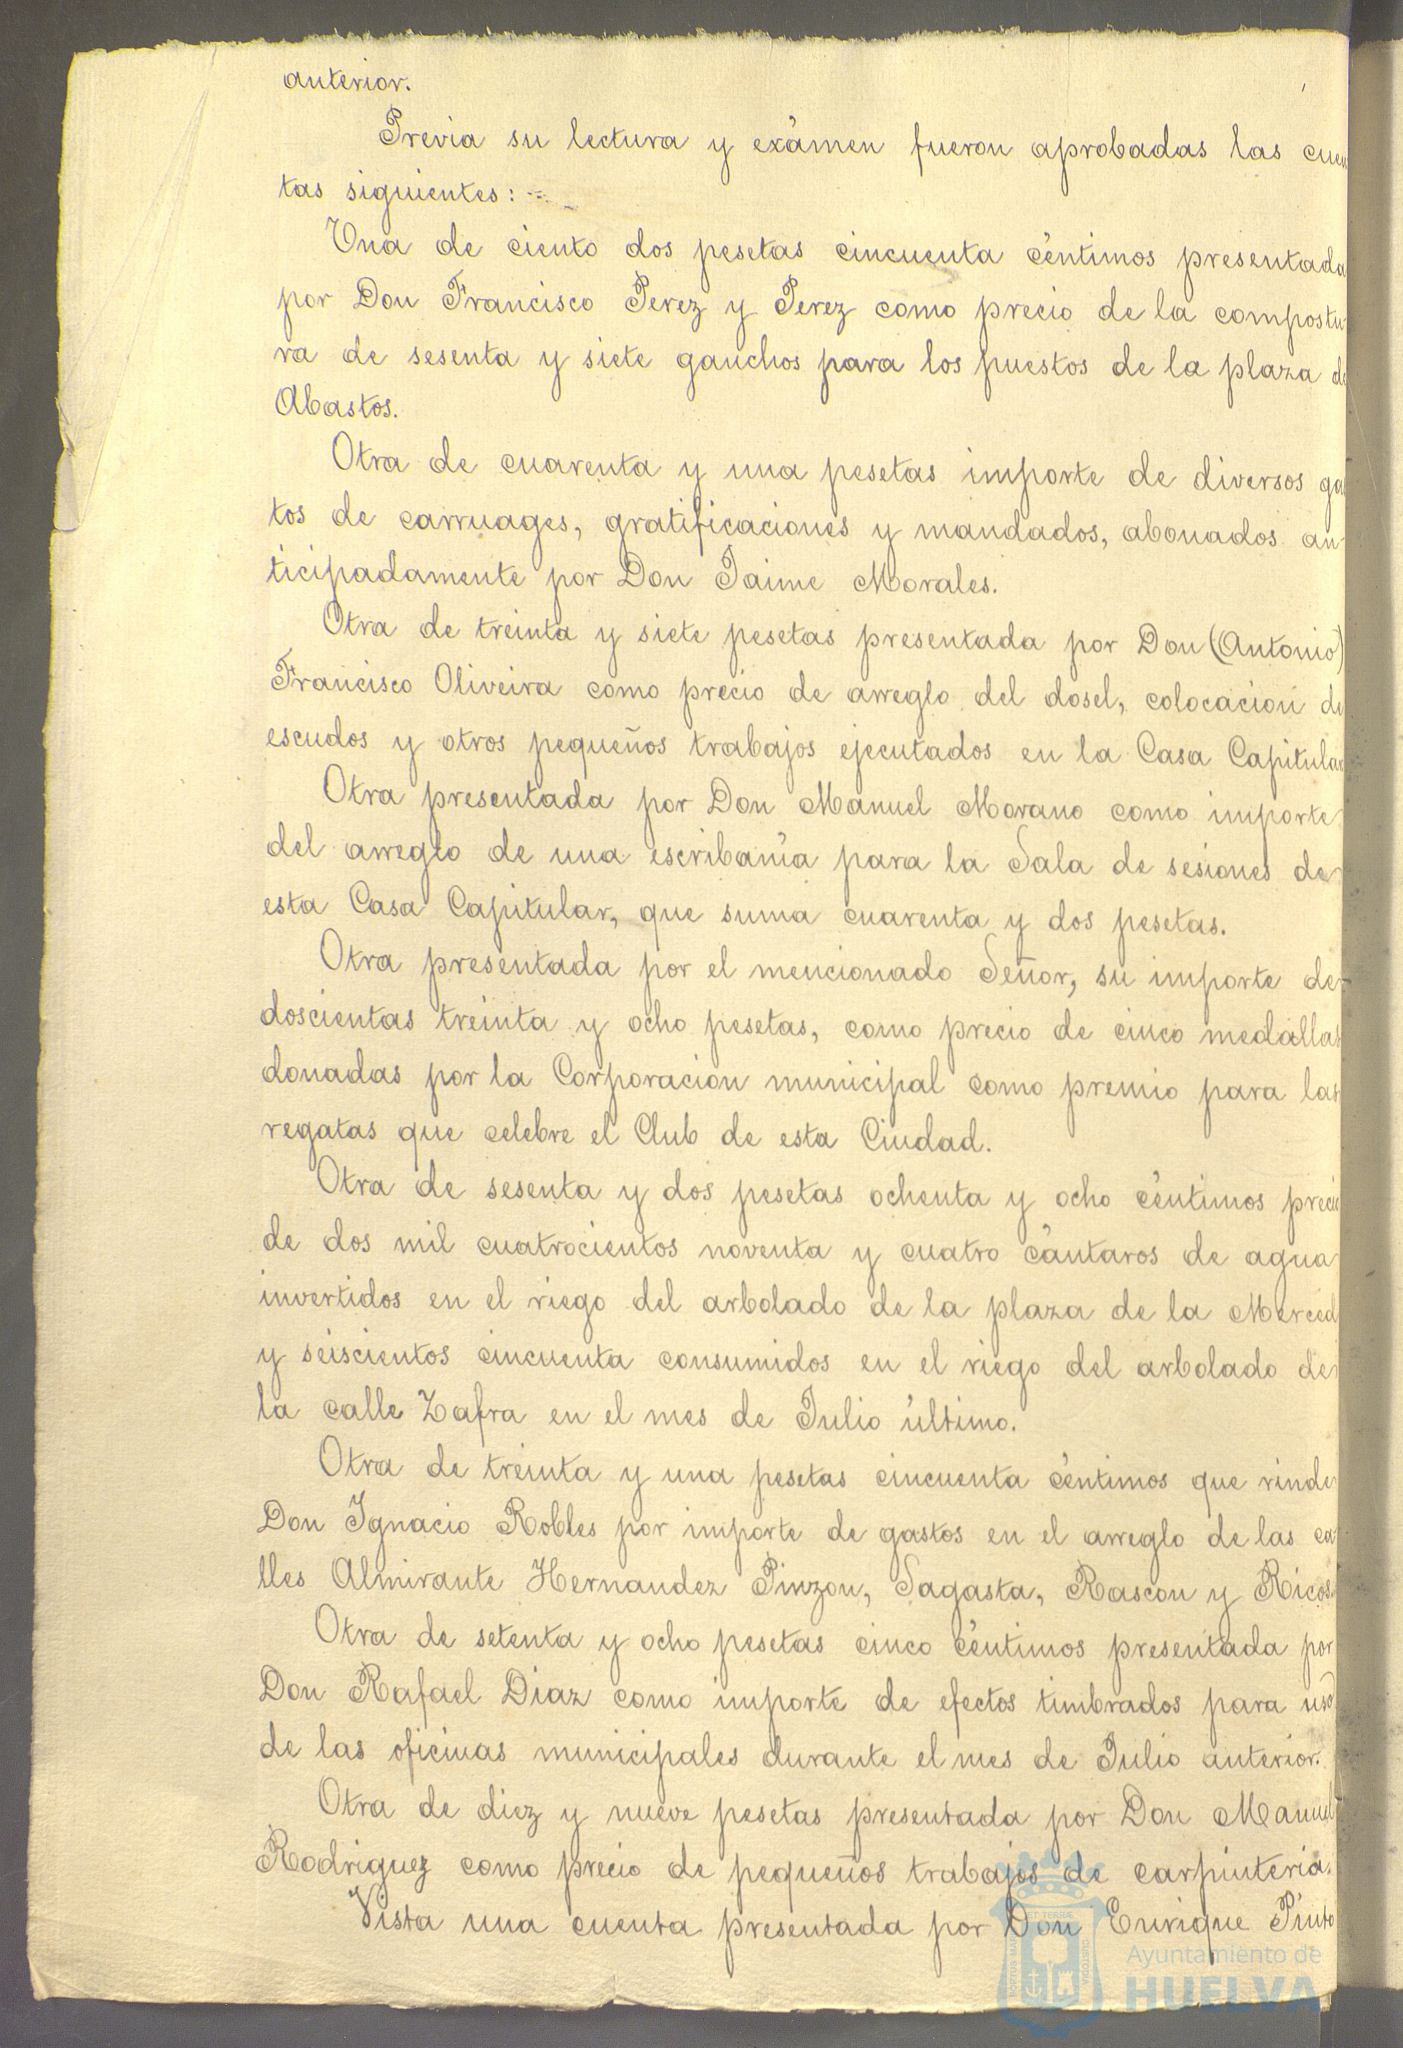 anterior.
Previa su lectura y exámen fueron aprobadas las cuen
tas siguientes: -
Una de ciento dos pesetas cincuenta céntimos presentada
por Don Francisco Perez y Perez como precio de la compostu-
ra de sesenta y siete ganchos para los puestos de la plaza de
Abastos.
Otra de cuarenta y una pesetas importe de diversos gas
tos de carruages, gratificaciones y mandados, abonados an-
ticipadamente por Don Jaime Morales.
Otra de treinta y siete pesetas presentada por Don (Antonio)
Francisco Oliveira como precio de arreglo del dosel, colocación de
escudos y otros pequeños trabajos ejecutados en la Casa Capitular
Otra presentada por Don Manuel Morano como importe
del arreglo de una escribanía para la Sala de sesiones de
esta Casa Capitular, que suma cuarenta y dos pesetas.
Otra presentada por el mencionado Señor, su importe de
doscientas treinta y ocho pesetas, como precio de cinco medallas
donadas por la Corporacion municipal como premio para las
regatas que celebre el Club de esta Ciudad.
Otra de sesenta y dos pesetas ochenta y ocho céntimos precio
de dos mil cuatrocientos noventa y cuatro cántaros de agua
invertidos en el riego del arbolado de la plaza de la Merced
y seiscientos cincuenta consumidos en el riego del arbolado de
la calle Zafra en el mes de Julio último.
Otra de treinta y una pesetas cincuenta céntimos que rinde
Don Ignacio Robles por importe de gastos en el arreglo de las ca-
lles Almirante Hernandez Pinzon, Sagasta, Rascon y Ricos.
Otra de setenta y ocho pesetas cinco céntimos presentada por
Don Rafael Diaz como importe de efectos timbrados para uso
de las oficinas municipales durante el mes de Julio anterior.
Otra de diez y nueve pesetas presentada por Don Manuel
Rodriguez como precio de pequeños trabajos de carpinteria.
Vista una cuenta presentada por Don Enrique Pinto
Ayuntamiento de
HUELVA